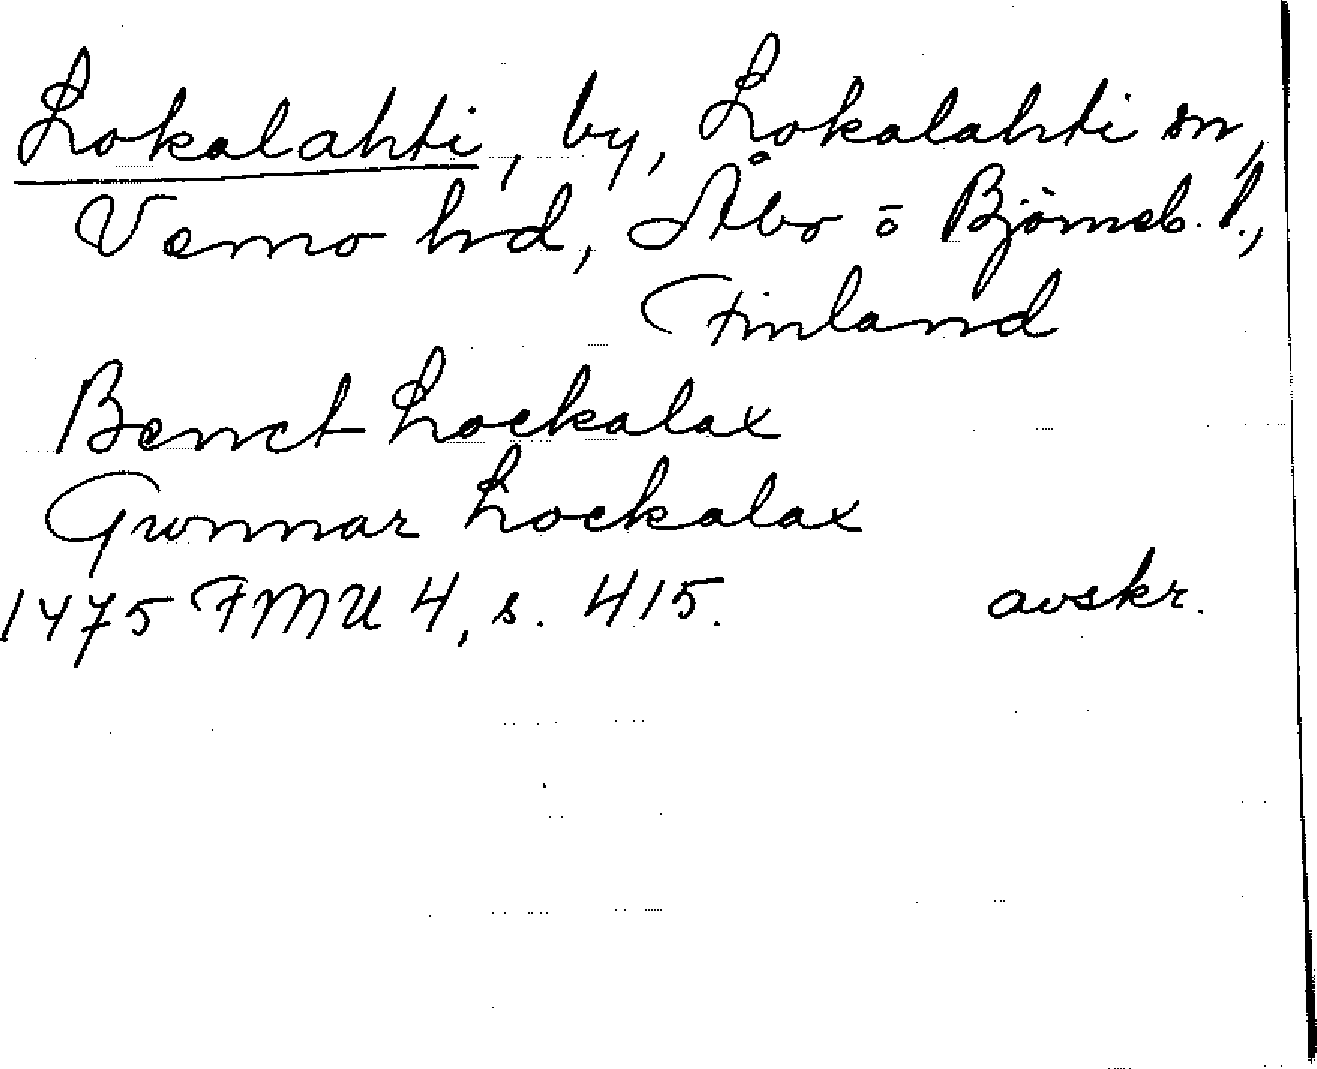 Lokalahti, by, Lokalahti sn,
Vemo hd, Åbo o Björneb. l.,
Finland
Benct Lockalax
Gunnar Lockalax
1475 FMU 4, s. 415. avskr.